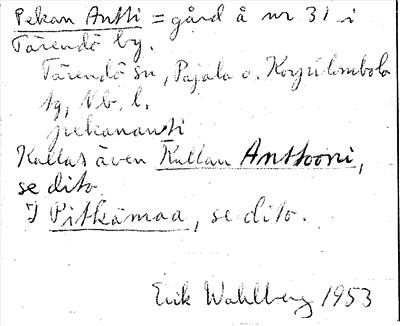 Pekan Antti = gård å nr 31 i
Tärendö by.
Tärendö sn, Pajala o. Korpilombolo
tg, Nb. l.
pekananti
Kallas även Kallan Anttooni,
se dito.
I Pitkämaa, se dito.
Erik Wahlberg 1953